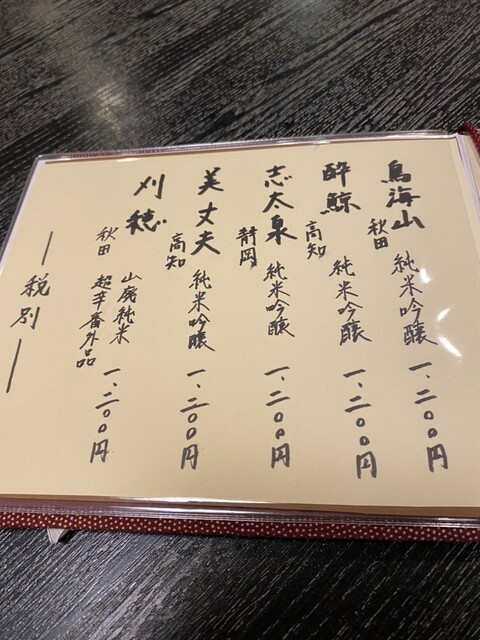 鳥海山 秋田 純米吟醸 一、二〇〇円
酔鯨 高知 純米吟醸 一、二〇〇円
志太泉 静岡 純米吟醸 一、二〇〇円
美丈夫 高知 純米吟醸 一、二〇〇円
刈穂 秋田 山廃純米 超辛番外品 一、二〇〇円
税別